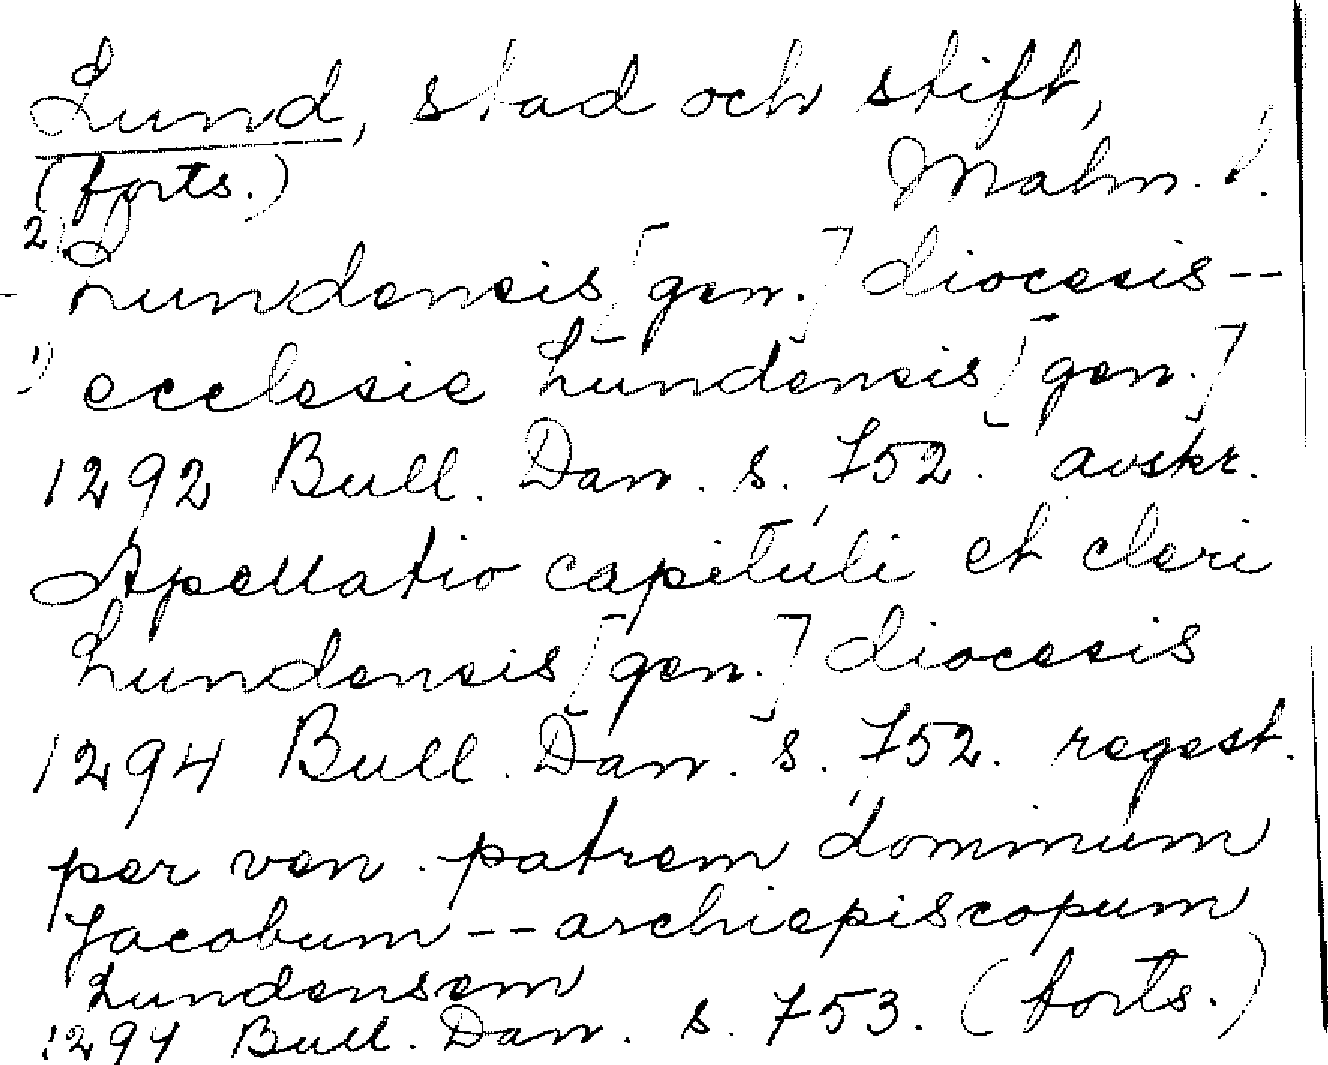 Lund, stad och stift,
(forts.) Malm. l.
2) Lundensis [gen.] diocesis--
1) ecclesie Lundensis [gen.]
1292 Bull. Dan. s. 752. avskr.
Apellatio capituli et cleri
Lundensis [gen.] diocesis
1294 Bull. Dan. s. 752. regest.
per ven. patrem dominum
Jacobum -- archiepiscopum
Lundensem
1294 Bull. Dan. s. 753. (forts.)